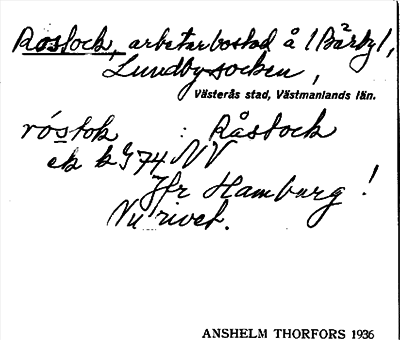 Rostock, arbetarbostad å (Bärby),
Lundby socken,
Västerås stad, Västmanlands län.
róstok : Råstock
ek bg 74 NV
Jfr Hamburg!
Nu rivet.
ANSHELM THORFORS 1936